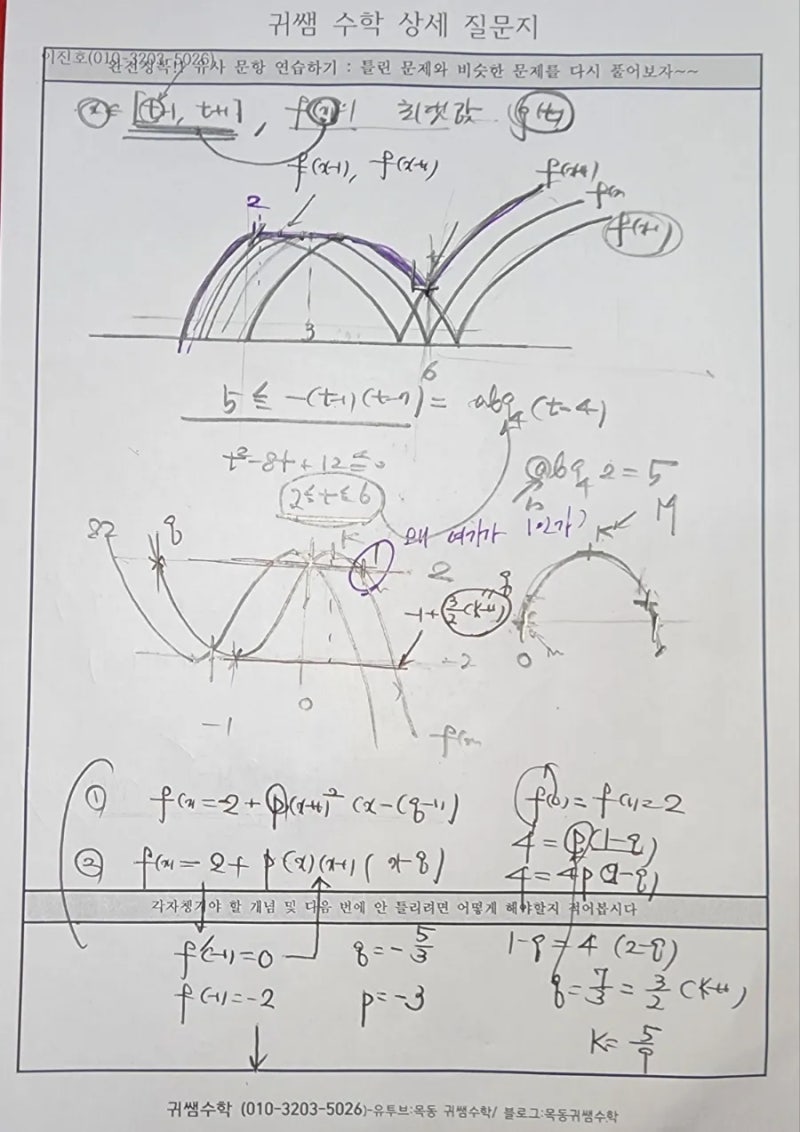 귀쌤 수학 상세 질문지
이진호(010-3203-5026)
완전정복!! 유사 문항 연습하기 : 틀린 문제와 비슷한 문제를 다시 풀어보자~~
x = [t-1, t+1] , f(x)의 최댓값 g(t)
f(x-1), f(x+1)
f(x+1)
f(x)
f(x-1)
2
3
6
5 ≤ -(t-1)(t-7) = (t-4)
t²-8t+12≤0
2≤t≤6
2=5
왜 여기가 1인가?
82
8
K
1
2
-1+ 3/2(k+1)
K
M
-2
0
0
-1
f(x)
① f(x)=-2+p(x+1)²(x-(q-1))
f(0)=f(1)=2
4=p(1-q)
② f(x)=2+p(x)(x+1)(x-q)
4=4p(2-q)
각자챙겨야 할 개념 및 다음 번에 안 틀리려면 어떻게 해야할지 적어봅시다
f'(-1)=0
q=-5/3
1-q=4(2-q)
f(-1)=-2
p=-3
q=7/3=3/2(k+1)
K=5/9
귀쌤수학 (010-3203-5026)-유투브:목동 귀쌤수학/ 블로그:목동귀쌤수학